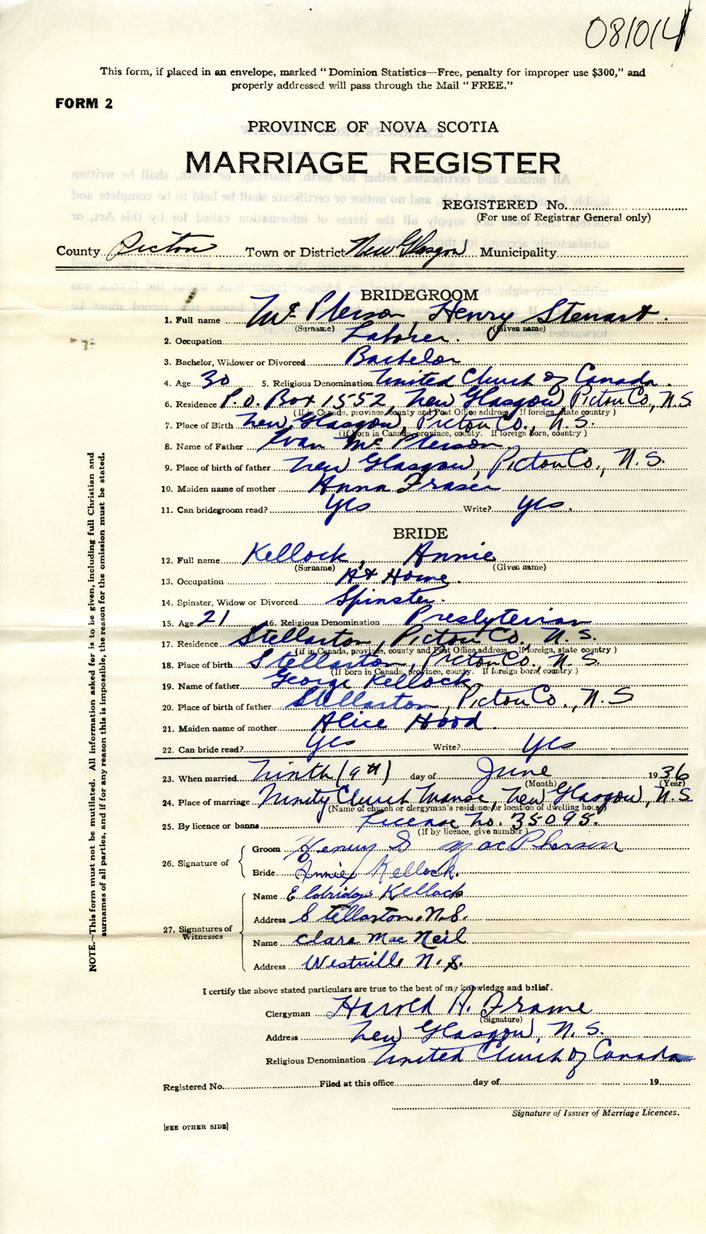 081014
This form, if placed in an envelope, marked "Dominion Statistics—Free, penalty for improper use $300," and
properly addressed will pass through the Mail "FREE."
FORM 2
PROVINCE OF NOVA SCOTIA
MARRIAGE REGISTER
REGISTERED No.
(For use of Registrar General only)
County Picton Town or District New Glasgow Municipality
BRIDEGROOM
1. Full name McPherson Henry Stewart.
(Surname) (Given name)
2. Occupation Laborer.
3. Bachelor, Widower or Divorced Bachelor
4. Age 30 5. Religious Denomination United Church of Canada.
6. Residence P.O. Box 1552, New Glasgow, Picton Co., N.S.
(If in Canada, province, county and Post Office address. If foreign, state country)
7. Place of Birth New Glasgow, Picton Co., N.S.
(if born in Canada, province, county. If foreign born, country)
8. Name of Father Evan McPherson
9. Place of birth of father New Glasgow, Picton Co., N.S.
10. Maiden name of mother Anna Fraser
11. Can bridegroom read? Yes Write? Yes.
BRIDE
12. Full name Kellock, Annie
(Surname) (Given name)
13. Occupation At Home.
14. Spinster, Widow or Divorced Spinster.
15. Age 21 16. Religious Denomination Presbyterian
17. Residence Stellarton, Picton Co., N.S.
(if in Canada, province, county and Post Office address. If foreign, state country)
18. Place of birth Stellarton, Picton Co., N.S.
(If born in Canada, province, county. If foreign born, country)
19. Name of father George Kellock
20. Place of birth of father Stellarton, Picton Co., N.S
21. Maiden name of mother Alice Hood.
22. Can bride read? Yes Write? Yes
23. When married Ninth (9th) day of June 1936
(Month) (Year)
24. Place of marriage Trinity Church Manse, New Glasgow, N.S
(Name of church or clergyman's residence or location of dwelling house)
25. By licence or banns License No. 35098.
(If by licence, give number)
26. Signature of
Groom Henry S MacPherson
Bride Annie Kellock.
27. Signatures of Witnesses
Name Kellock
Address Stellarton. N.S.
Name Clara MacNeil
Address Westville N.S.
I certify the above stated particulars are true to the best of my knowledge and belief.
Clergyman Harold A. Frame
(Signature)
Address New Glasgow, N.S.
Religious Denomination United Church of Canada
Registered No. Filed at this office day of 19
Signature of Issuer of Marriage Licences.
[SEE OTHER SIDE]
NOTE.—This form must not be mutilated. All information asked for is to be given, including full Christian and
surnames of all parties, and if for any reason this is impossible, the reason for the omission must be stated.